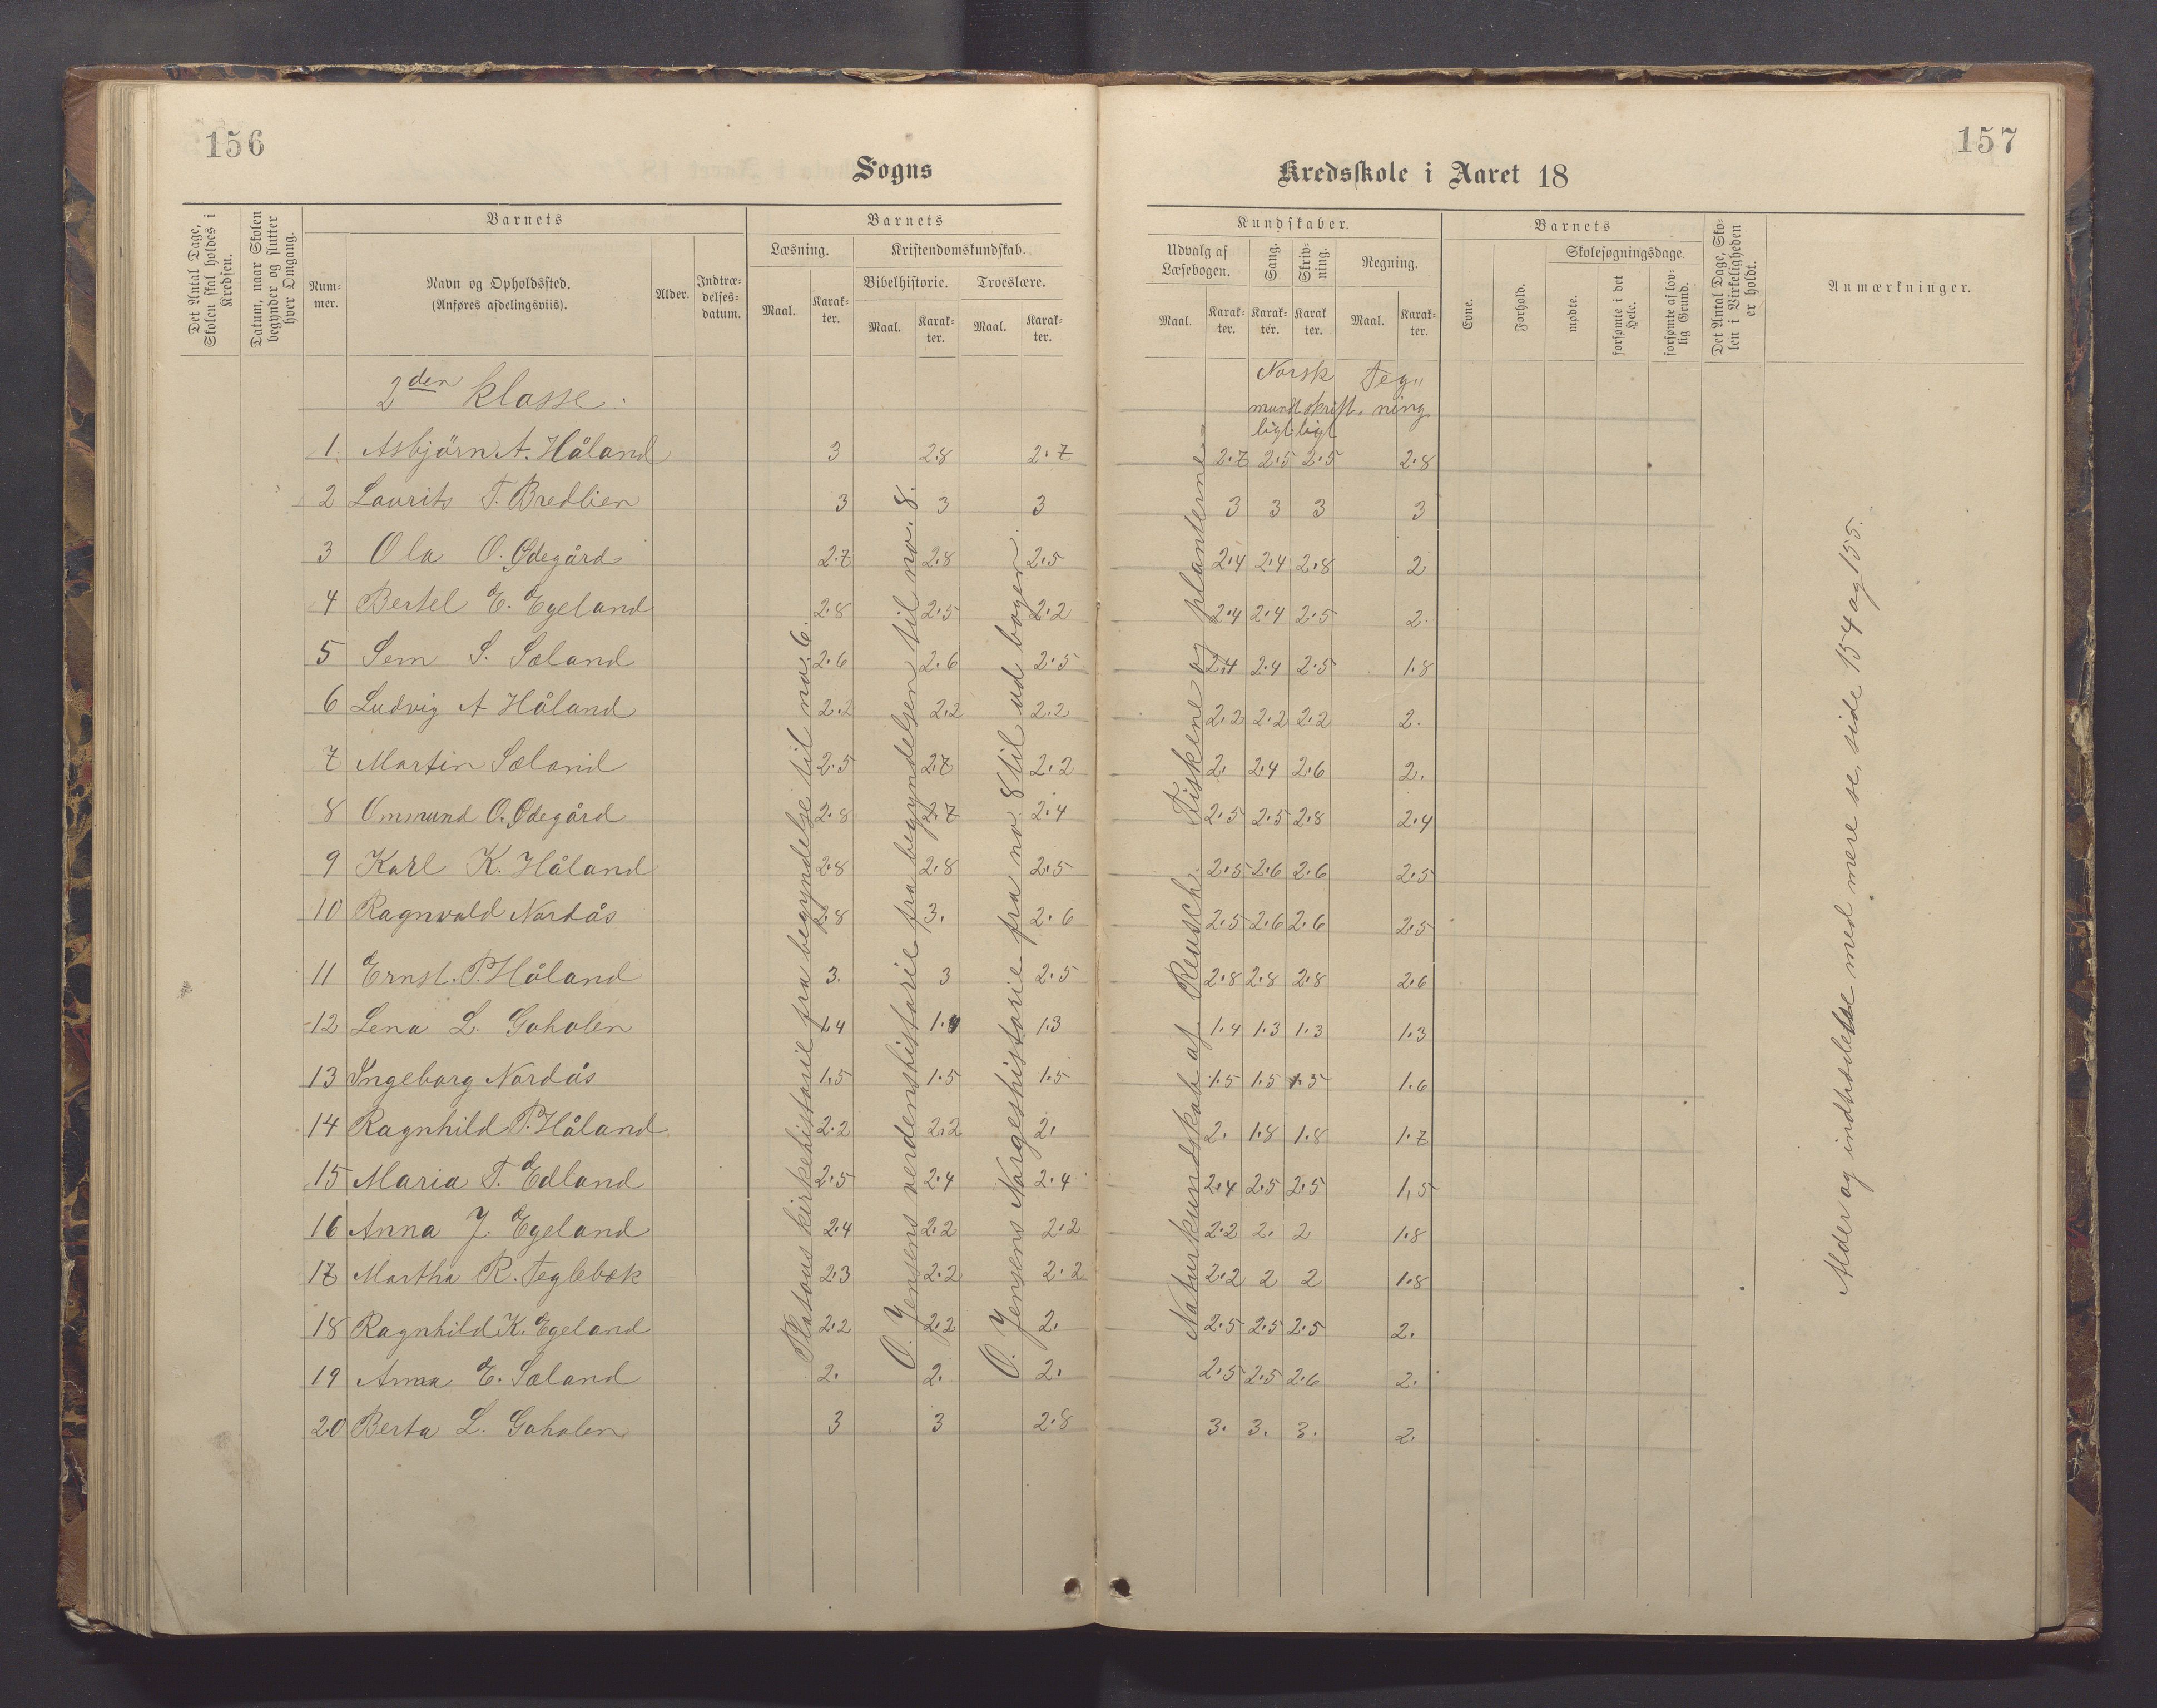 156
Sogns
Det Antal Dage, Skolen skal holdes i Kredsen.
Datum, naar Skolen begynder og slutter hver Omgang.
Barnets
Num-mer.
Navn og Opholdssted.
(Anføres afdelingsviis).
Alder.
Indtræ-delses-datum.
Barnets
Læsning.
Kristendomskundskab.
Bibelhistorie.
Troeslære.
Maal. Karak-ter. Maal. Karak-ter. Maal. Karak-ter.
2den klasse.
1. Asbjörn A. Håland 3 2.8 2.7
2 Laurits T. Bredlien 3 3 3
3 Ola O. Ødegård 2.7 2.8 2.5
4 Bertel E. Egeland 2.8 2.5 2.2
5 Sem S. Sæland 2.6 2.6 2.5
6 Ludvig A Håland 2.2 2.2 2.2
7 Martin Sæland 2.5 2.7 2.2
8 Ommund O. Ødegård 2.8 2.7 2.4
9 Karl K. Håland 2.8 2.8 2.5
10 Ragnvald Nordås 2.8 3. 2.6
11 Ernst. P. Håland 3. 3 2.5
12 Lena L. Gaholen 1.4 1.4 1.3
13 Ingeborg Nordås 1.5 1.5 1.5
14 Ragnhild P. Håland 2.2 2.2 2.
15 Maria T. Edland 2.5 2.4 2.4
16 Anna J. Egeland 2.4 2.2 2.2
17 Martha R. Teglebæk 2.3 2.2 2.2
18 Ragnhild K. Egeland 2.2 2.2 2.
19 Anna E. Sæland 2. 2. 2.
20 Berta L. Gaholen 3 3 2.8
Platous kirkehistorie fra begyndelse til no. 6.
O. Jensens verdenshistorie fra begyndelsen til no. 8.
O. Jensens Norgeshistorie fra no 8 til ud bogen.
157
Kredsskole i Aaret 18
Kundskaber.
Udvalg af Læsebogen.
Sang.
Skriv-ning.
Regning.
Maal. Karak-ter. Karak-ter. Karak ter. Maal. Karak-ter.
Barnets
Evne.
Forhold.
Skolesøgningsdage
mødte.
forsømte i det Hele.
forsømte af lov-lig Grund.
Det Antal Dage, Sko-len i Virkeligheden er holdt.
Anmærkninger.
Norsk Teg"
mundt skriftl. ning
ligt ligt
2.7 2.5 2.5 2.8
3 3 3 3
2.4 2.4 2.8 2
2.4 2.4 2.5 2.
2.4 2.4 2.5 1.8
2.2 2.2 2.2 2.
2. 2.4 2.6 2.
2.5 2.5 2.8 2.4
2.5 2.6 2.6 2.5
2.5 2.6 2.6 2.5
2.8 2.8 2.8 2.6
1.4 1.3 1.3 1.3
1.5 1.5 1.5 1.6
2. 1.8 1.8 1.7
2.4 2.5 2.5 1,5
2.2 2. 2 1.8
2.2 2 2 1.8
2.5 2.5 2.5 2.
2.5 2.5 2.6 2.
3. 3. 3. 2.
Naturkundskab af Reusch. Fiskene og planterne
Alder og indtrædelse med mere se, side 154 og 155.